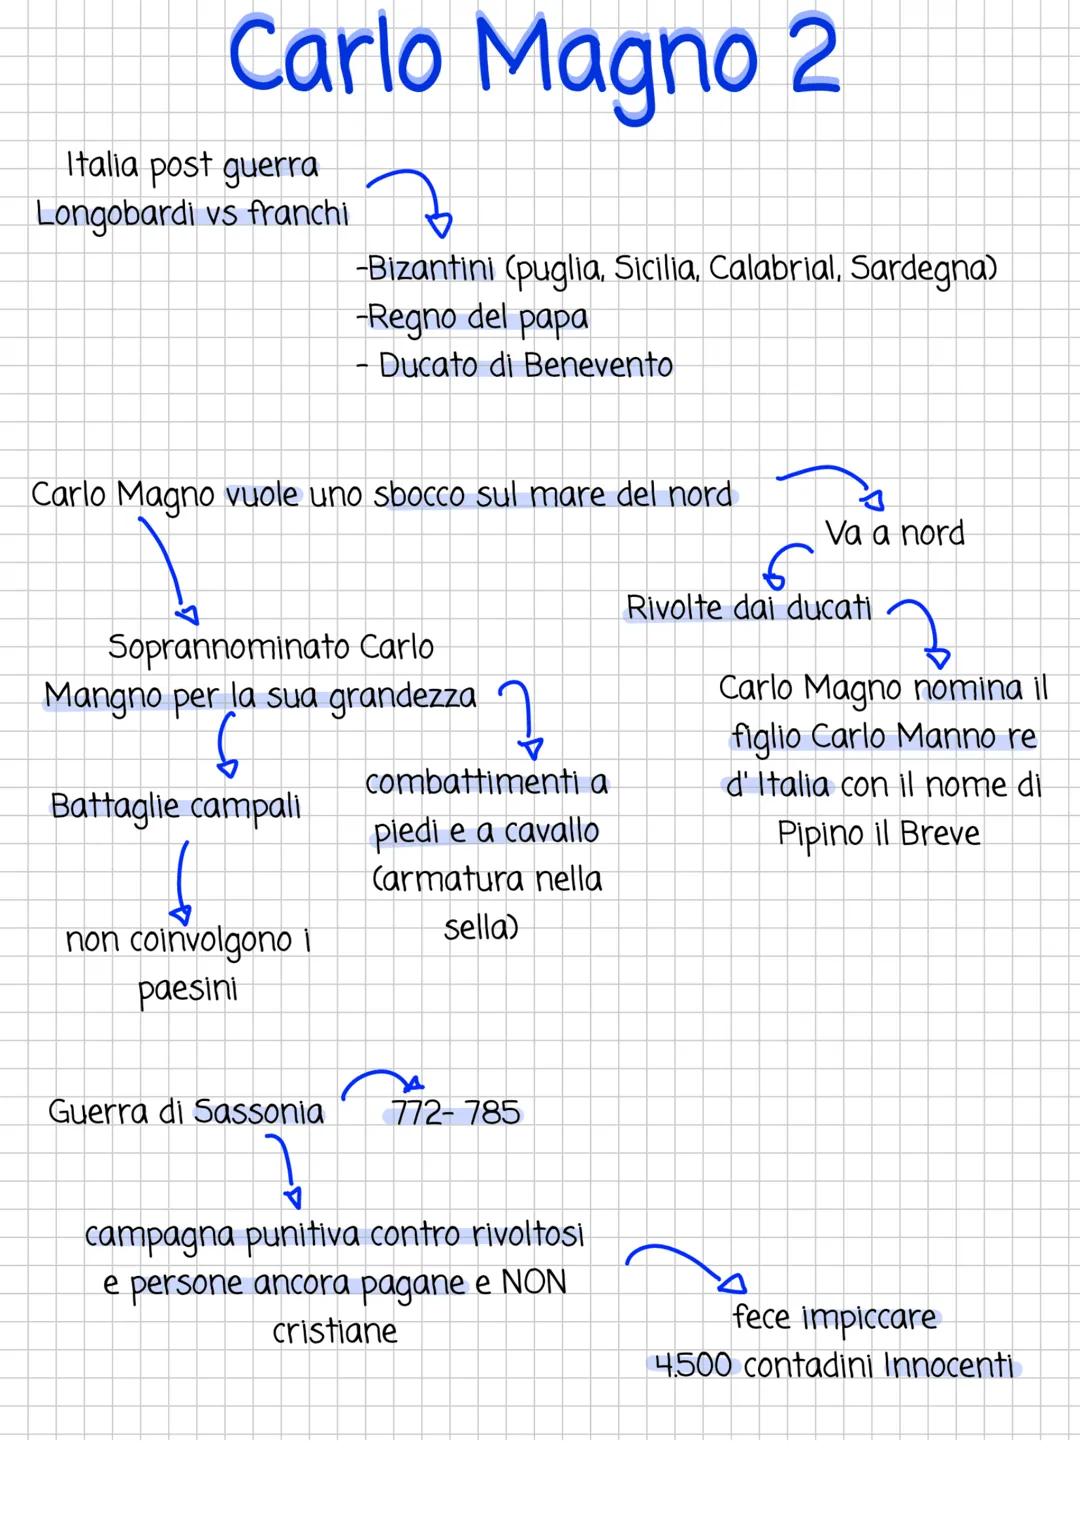 Carlo Magno 2
Italia post guerra
Longobardi vs franchi
-Bizantini (puglia, Sicilia, Calabrial, Sardegna)
-Regno del papa
- Ducato di Benevento
Carlo Magno vuole uno sbocco sul mare del nord
Va a nord
Rivolte dai ducati
Soprannominato Carlo
Mangno per la sua grandezza
Carlo Magno nomina il
figlio Carlo Manno re
d'Italia con il nome di
Pipino il Breve
Battaglie campali
combattimenti a
piedi e a cavallo
(armatura nella
sella)
non coinvolgono i
paesini
Guerra di Sassonia
772-785
campagna punitiva contro rivoltosi
e persone ancora pagane e NON
cristiane
fece impiccare
4.500 contadini Innocenti